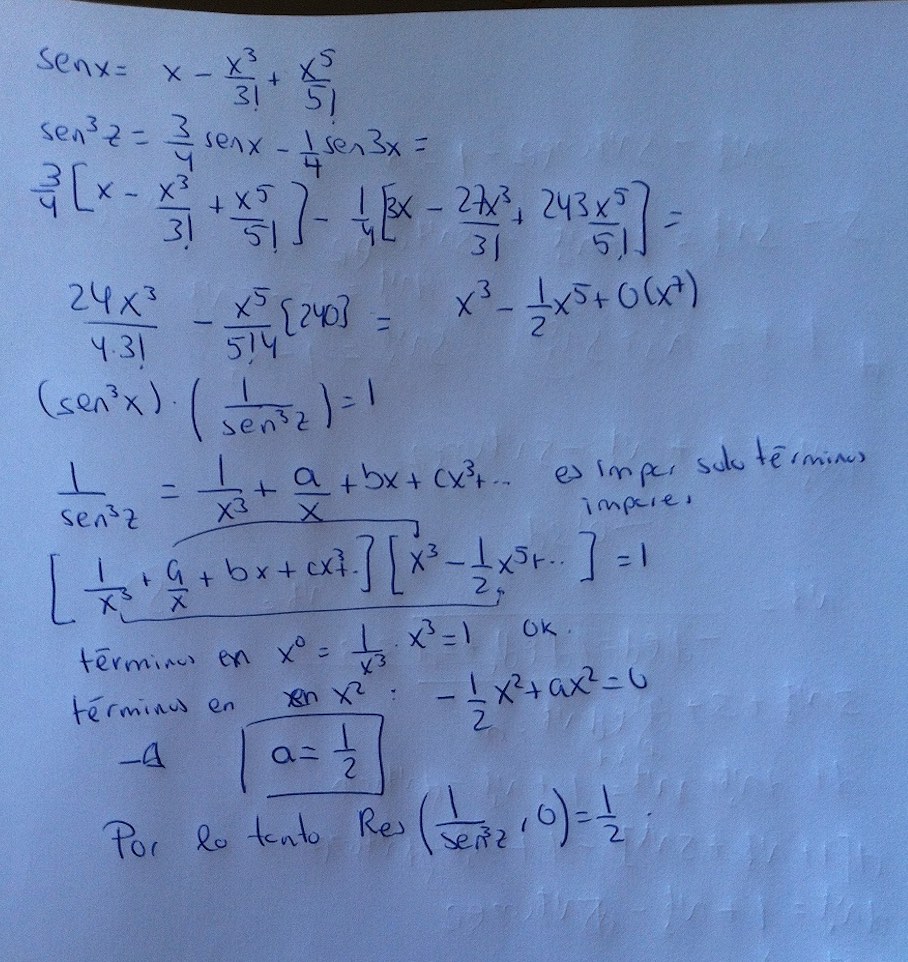 senx = x - x³/3! + x⁵/5!
sen³z = 3/4 senx - 1/4 sen3x =
3/4 [x - x³/3! + x⁵/5!] - 1/4 [3x - 27x³/3! + 243x⁵/5!] =
24x³/4·3! - x⁵/5!4 {240} = x³ - 1/2 x⁵ + O(x⁷)
(sen³x) · (1/sen³z) = 1
1/sen³z = 1/x³ + a/x + bx + cx³+... es impar solo términos
impares
[1/x³ + a/x + bx + cx³+..] [x³ - 1/2 x⁵+..] = 1
términos en x⁰ = 1/x³ · x³ = 1 OK.
términos en x² : - 1/2 x² + ax² = 0
a = 1/2
Por lo tanto Res (1/sen³z, 0) = 1/2.